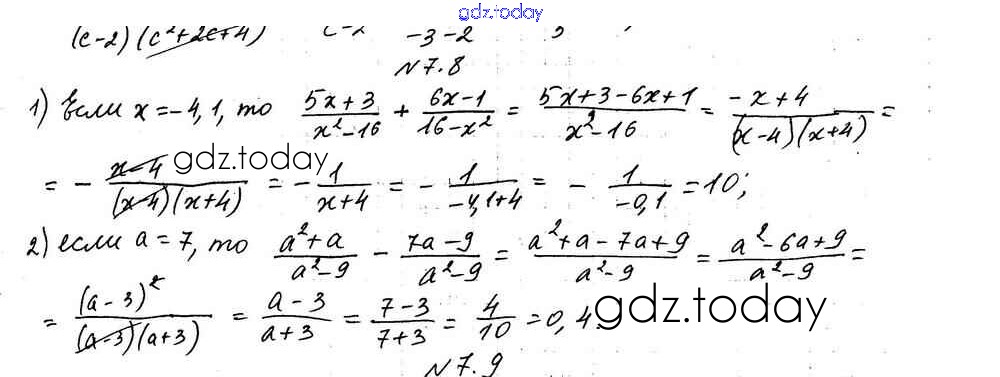 gdz.today
(c-2)(c²+2c+4) c-2 -3-2
N7.8
1) Если x=-4,1, то (5x+3)/(x²-16) + (6x-1)/(16-x²) = (5x+3-6x+1)/(x²-16) = (-x+4)/((x-4)(x+4)) =
= - (x-4)/((x-4)(x+4)) = - 1/(x+4) = - 1/(-4,1+4) = - 1/(-0,1) = 10;
gdz.today
2) если a=7, то (a²+a)/(a²-9) - (7a-9)/(a²-9) = (a²+a-7a+9)/(a²-9) = (a²-6a+9)/(a²-9) =
= (a-3)²/((a-3)(a+3)) = (a-3)/(a+3) = (7-3)/(7+3) = 4/10 = 0,4
gdz.today
N7.9